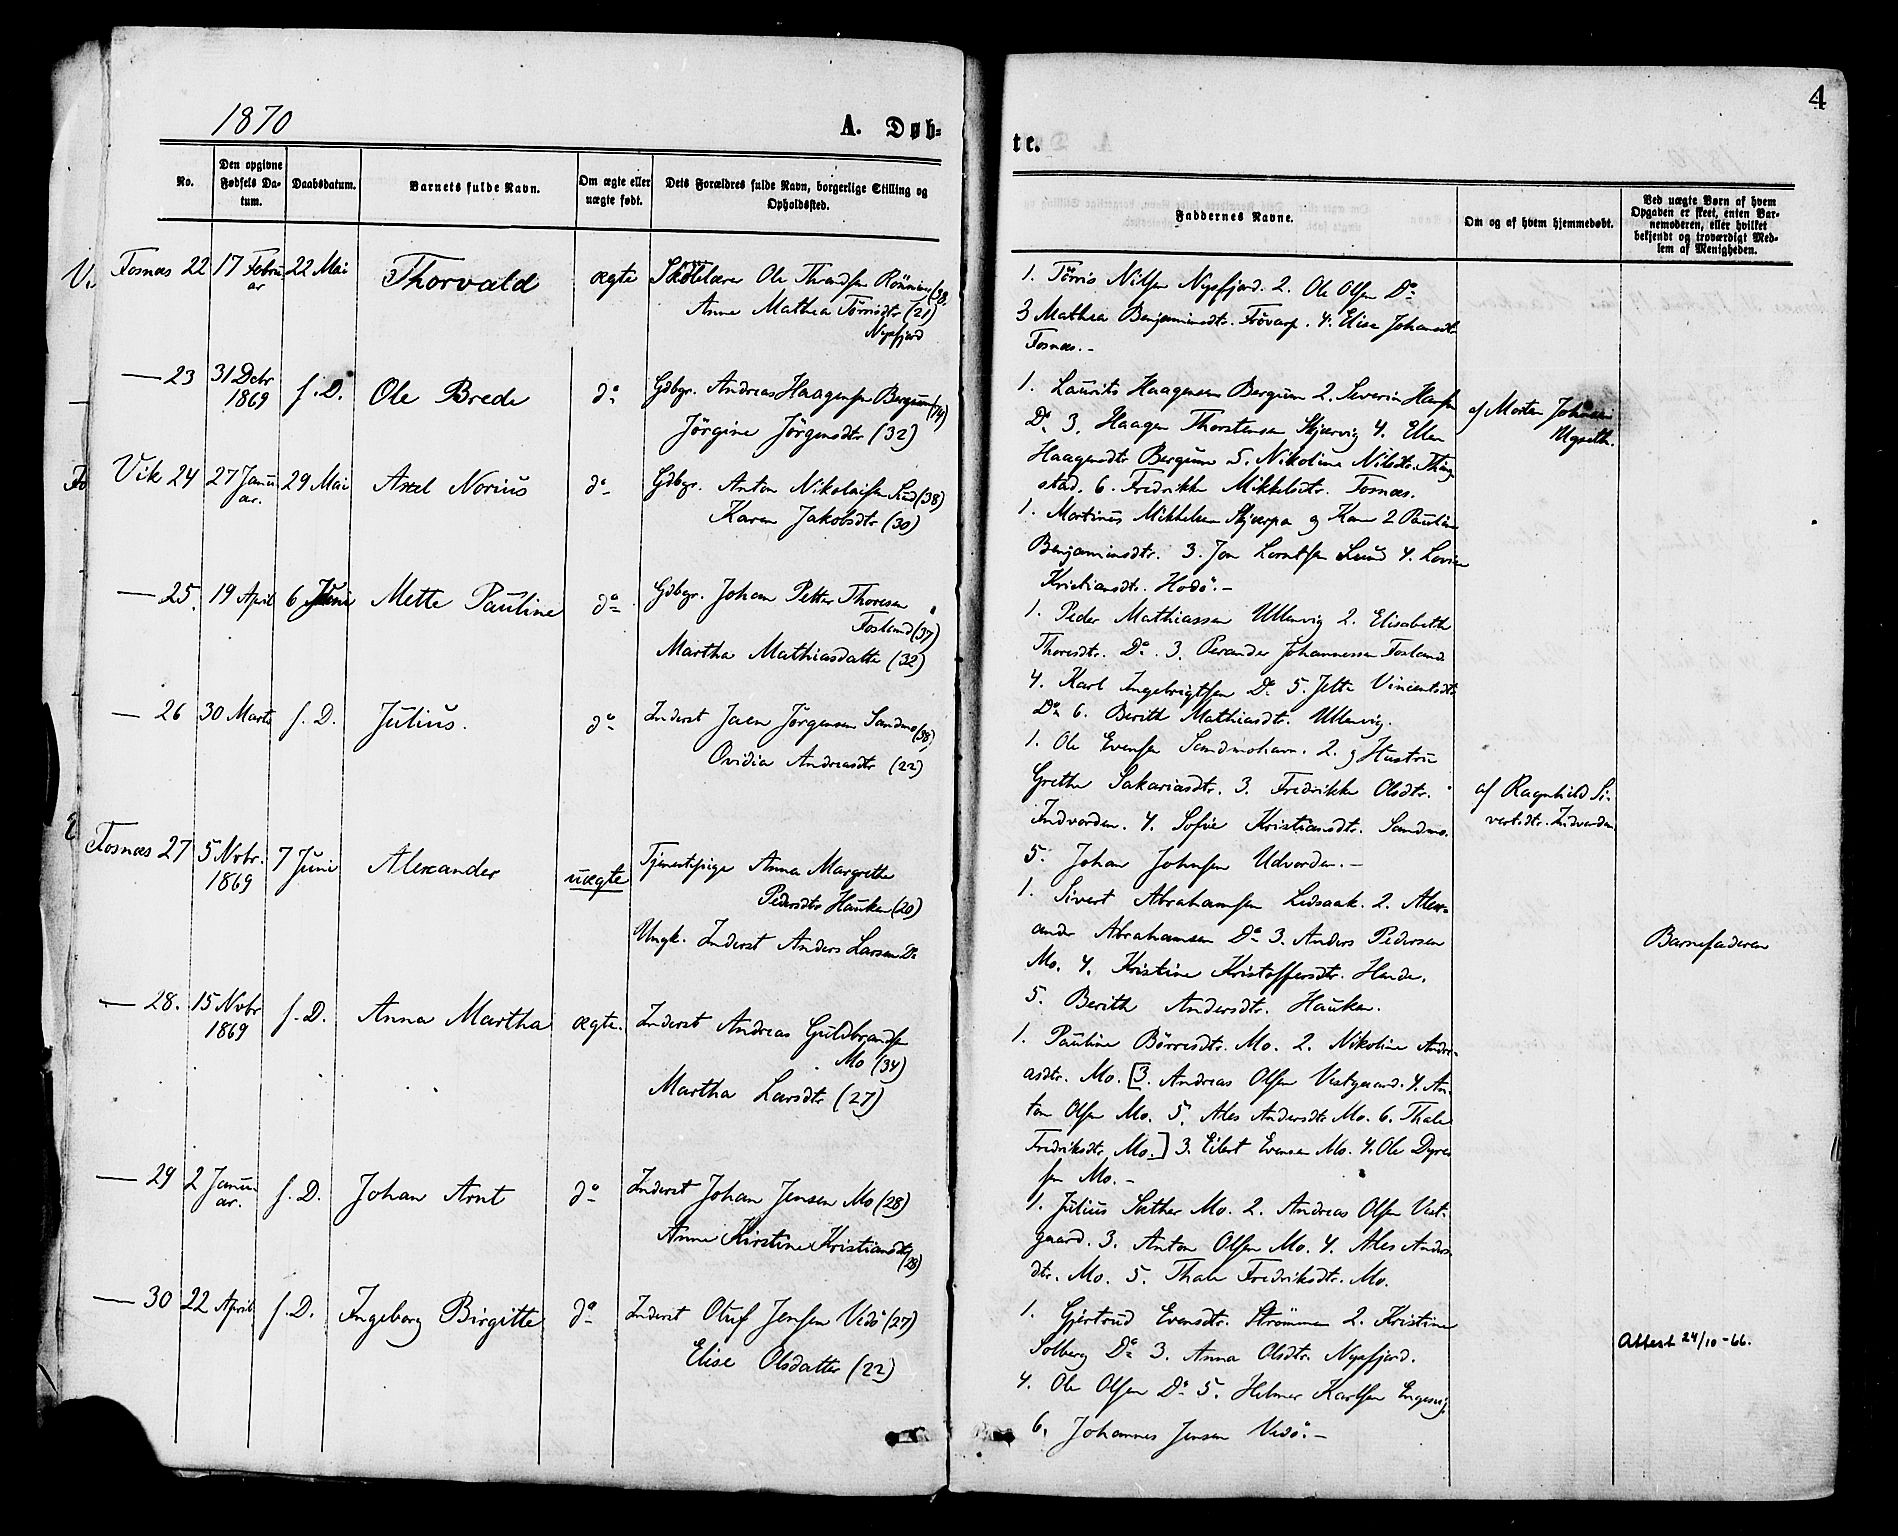 1870
A. Døb-
No.
Den opgivne Fødsels Da-tum.
Daabsdatum.
Barnets fulde Navn.
Om ægte eller uægte født.
Dets Forældres fulde Navn, borgerlige Stilling og Opholdssted.
Fosnæs 22
17 Febru
ar
22 Mai
Thorvald
ægte
Skolelærer Ole Thrandsen Rönning
Anne Mathea Törrisdtr (21)
Nysfjord
— 23
31 Debr
1869
s. D.
Ole Brede
do
Gdbgr. Andreas Haagensen Bergum
Jörgine Jörgensdtr (32)
Vik 24
27 Janu
ar.
29 Mai
Axel Norius
do
Gdbgr. Anton Nikolaisen Lund (38)
Karen Jakobsdtr (30)
— 25.
19 April
6 Juni
Mette Pauline
do
Gdbgr. Johan Petter Thoresen
Fosland (37)
Martha Mathiasdatter (32)
— 26
30 Marts
s. D.
Julius.
do
Inderst Jaen Jörgensen Sandmo (38)
Ovidia Andreasdtr (22)
Fosnæs 27
5 Nvbr.
1869
7 Juni
Alexander
uægte
Tjenestepige Anna Margrethe
Pedersdtr Hauken (20)
Ungk. Inderst Anders Larsen Do
— 28.
15 Nvbr
1869
s. D.
Anna Martha
ægte.
Inderst Andreas Guldbrandsen
Mo (34)
Martha Larsdtr (27)
— 29
2 Janu
ar.
s. D.
Johan Arnt
do
Inderst Johan Jensen Mo (28)
Anne Kirstine Kristiansdtr (28)
— 30
22 April
s. D.
Ingeborg Birgitte
do
Inderst Oluf Jensen Vedö (27)
Elise Olsdatter (22)
4
te.
Faddernes Navne.
Om og af hvem hjemmedøbt.
Ved uægte Børn af hvem Opgaven er skeet, enten Bar-nemoderen, eller hvilket bekjendt og troværdigt Med-lem af Menigheden.
1. Törris Nilsen Nysfjord. 2. Ole Olsen Do
3 Mathea Benjaminsdtr. Frövarp. 4. Elise Johansdtr
Fosnæs. —
1. Laurits Haagensen Bergum 2. Severin Hansen
Do 3. Haagen Thorstensen Skjærvig 4. Ellen
Haagensdtr Bergum 5. Nikoline Nilsdtr. Thing
stad. 6. Fredrikke Mikkelsdtr. Fosnæs.
af Morten Johnsen
1. Martinus Mikkelsen Skjærpa og Kone 2 Pauline
Benjaminsdtr. 3. Jon Lorntsen Lund 4. Lovise
Kristiansdtr. Hodö. —
1. Peder Mathiassen Ullervig 2. Elisabeth
Thoresdtr. Do. 3. Perander Johannessen Fosland
4. Karl Ingebrigtsen Do 5. Jette Vincentsdtr
Do 6. Berith Mathiasdtr. Ullervig.
1. Ole Evensen Sandmohavn. 2. og Hustru
Grethe Sakariasdtr. 3. Fredrikke Olsdtr.
Indvorden. 4. Sofie Kristiansdtr. Sandmo.
5. Johan Johnsen Udvorden. —
af Ragnhild Si-
vertsdtr. Indvorden
1. Sivert Abrahamsen Ledsaak. 2. Alex-
ander Abrahamsen Do 3. Anders Pedersen
Mo. 4. Kristine Kristoffersdtr. Hende.
5. Berith Andersdtr. Hauken.
Barnefaderen
1. Pauline Börresdtr. Mo. 2. Nikoline Andre-
asdtr. Mo. [3. Andreas Olsen Vestgaard. 4. An-
ton Olsen Mo. 5. Ales Andersdtr Mo. 6. Thale
Fredriksdtr. Mo.] 3. Eilert Evensen Mo. 4. Ole Dyre
sen Mo. —
1. Julius Sæther Mo. 2. Andreas Olsen Vest-
gaard. 3. Anton Olsen Mo. 4. Ales Anders
dtr. Mo. 5. Thale Fredriksdtr. Mo.
1. Gjertrud Evensdtr. Strömmen 2. Kristine
Solberg Do 3. Anna Olsdtr. Nysfjord.
4. Ole Olsen Do 5. Helmer Karlsen Engesvig
6. Johannes Jensen Vedö. —
Attest 24/10 -66.